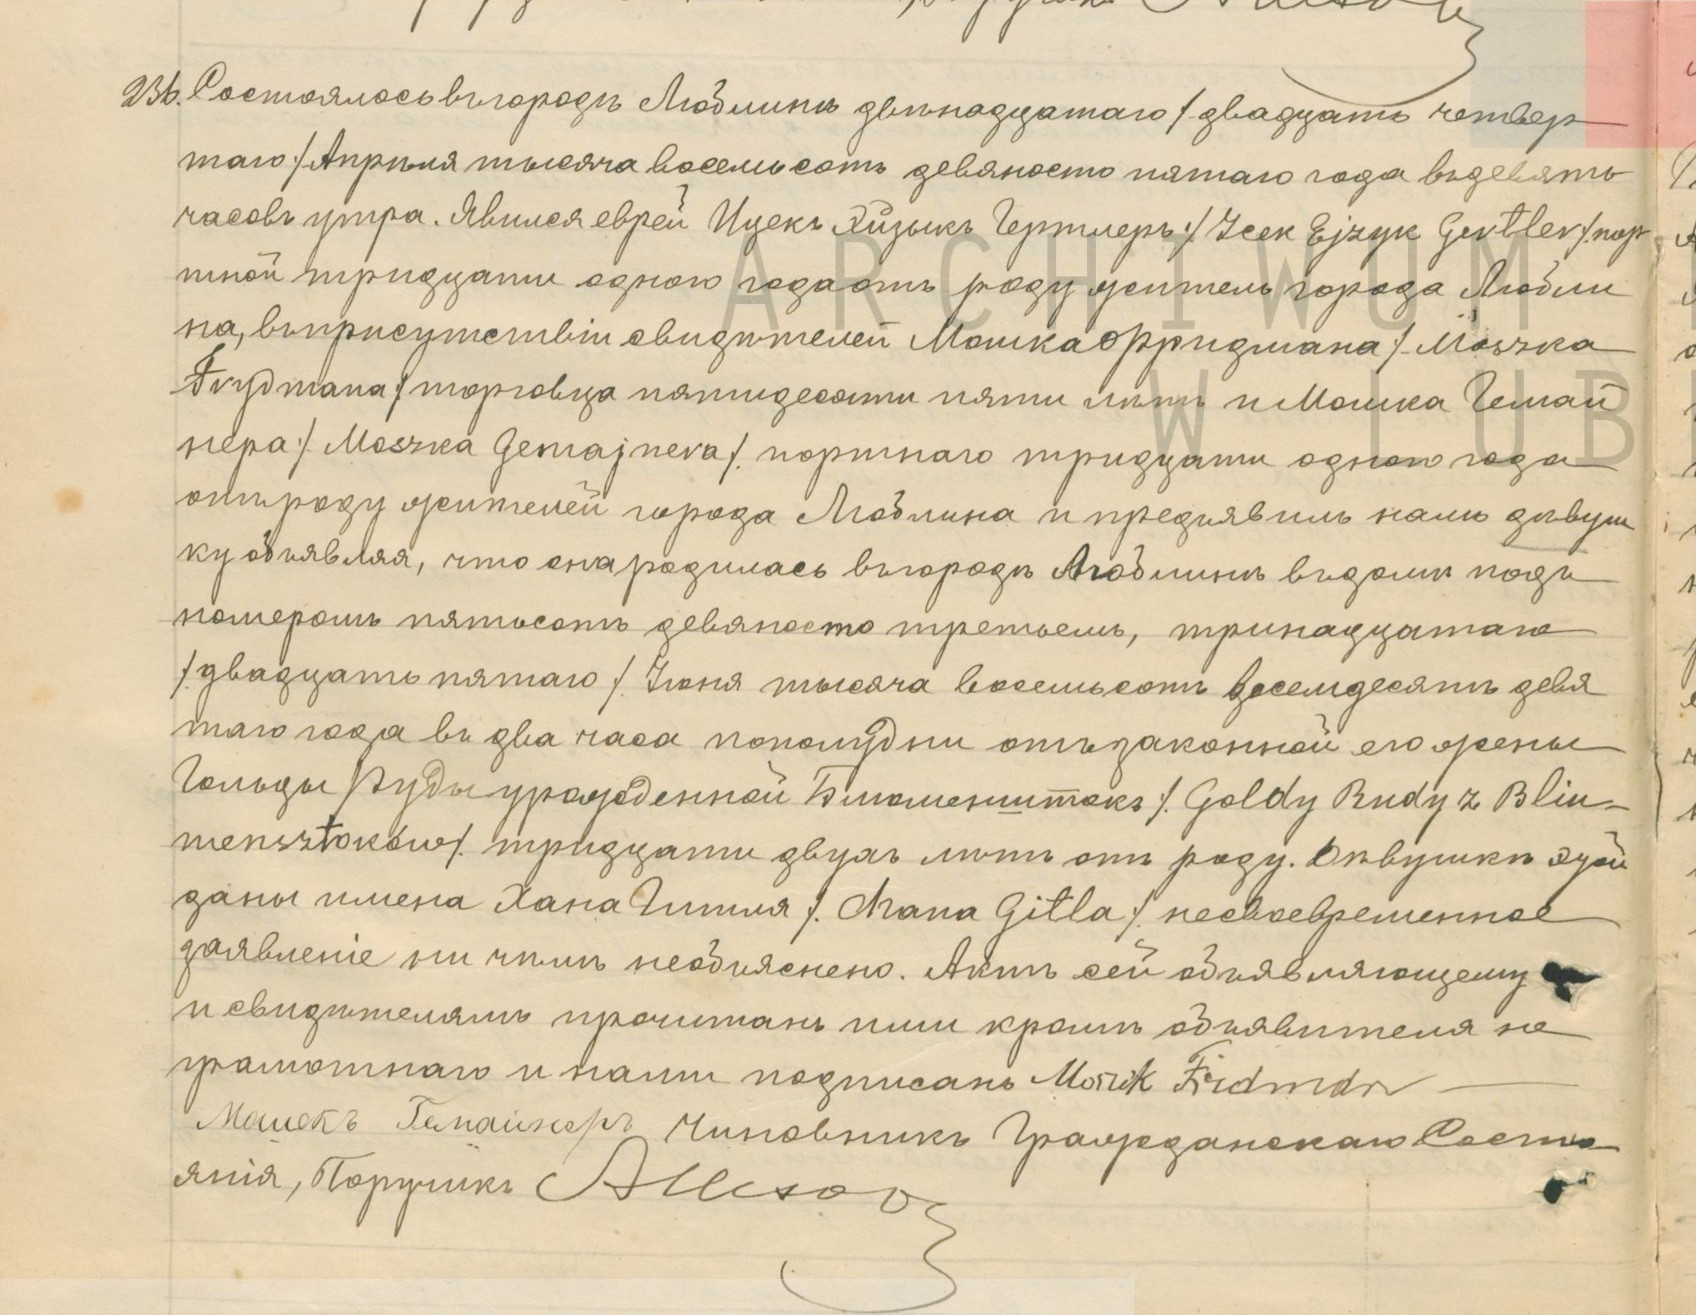 236. Состоялось въ городѣ Люблинѣ двѣнадцатаго /двадцать четвер
таго/ Апрѣля тысяча восемьсотъ девяносто пятаго года въ девять
часовъ утра. Явился еврей Ицекъ Эйзыкъ Гертлеръ /Icek Ejzyk Gertler/ пор
тной тридцати одного года отъ роду житель города Любли
на, въ присутствіи свидѣтелей Мошка Фридмана /Moszka
Frydmana/ торговца пятидесяти пяти лѣтъ и Мошка Гемай
нера /Moszka Gemajnera/ портнаго тридцати одного года
отъ роду жителей города Люблина и предъявилъ намъ дѣвуш
ку объявляя, что она родилась въ городѣ Люблинѣ въ домѣ подъ
номеромъ пятьсотъ девяносто третьемъ, тринадцатаго
/двадцать пятаго/ Іюня тысяча восемьсотъ восемдесятъ девя
таго года въ два часа пополудни отъ законной его жены
Гольды Руды урожденной Блюменштокъ /Goldy Rudy z Bliu-
mensztoków/ тридцати двухъ лѣтъ отъ роду. Дѣвушкѣ этой
даны имена Хана Гитля /Chana Gitla/ несвоевременное
заявленіе ни чѣмъ необъяснено. Актъ сей объявляющему
и свидѣтелямъ прочитанъ ими кромѣ объявителя не
грамотнаго и нами подписанъ Moszk Fridman
Мошекъ Гемайнеръ Чиновникъ Гражданскаго Состо
янія, Поручикъ
ARCHIWUM
W LUB